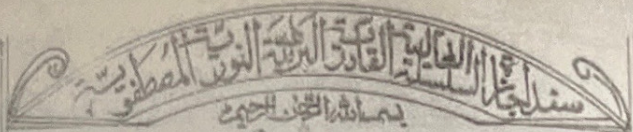 سند إجازة السلسلة العالية القادرية البركاتية النورية المصطفوية
بسم الله الرحمن الرحيم